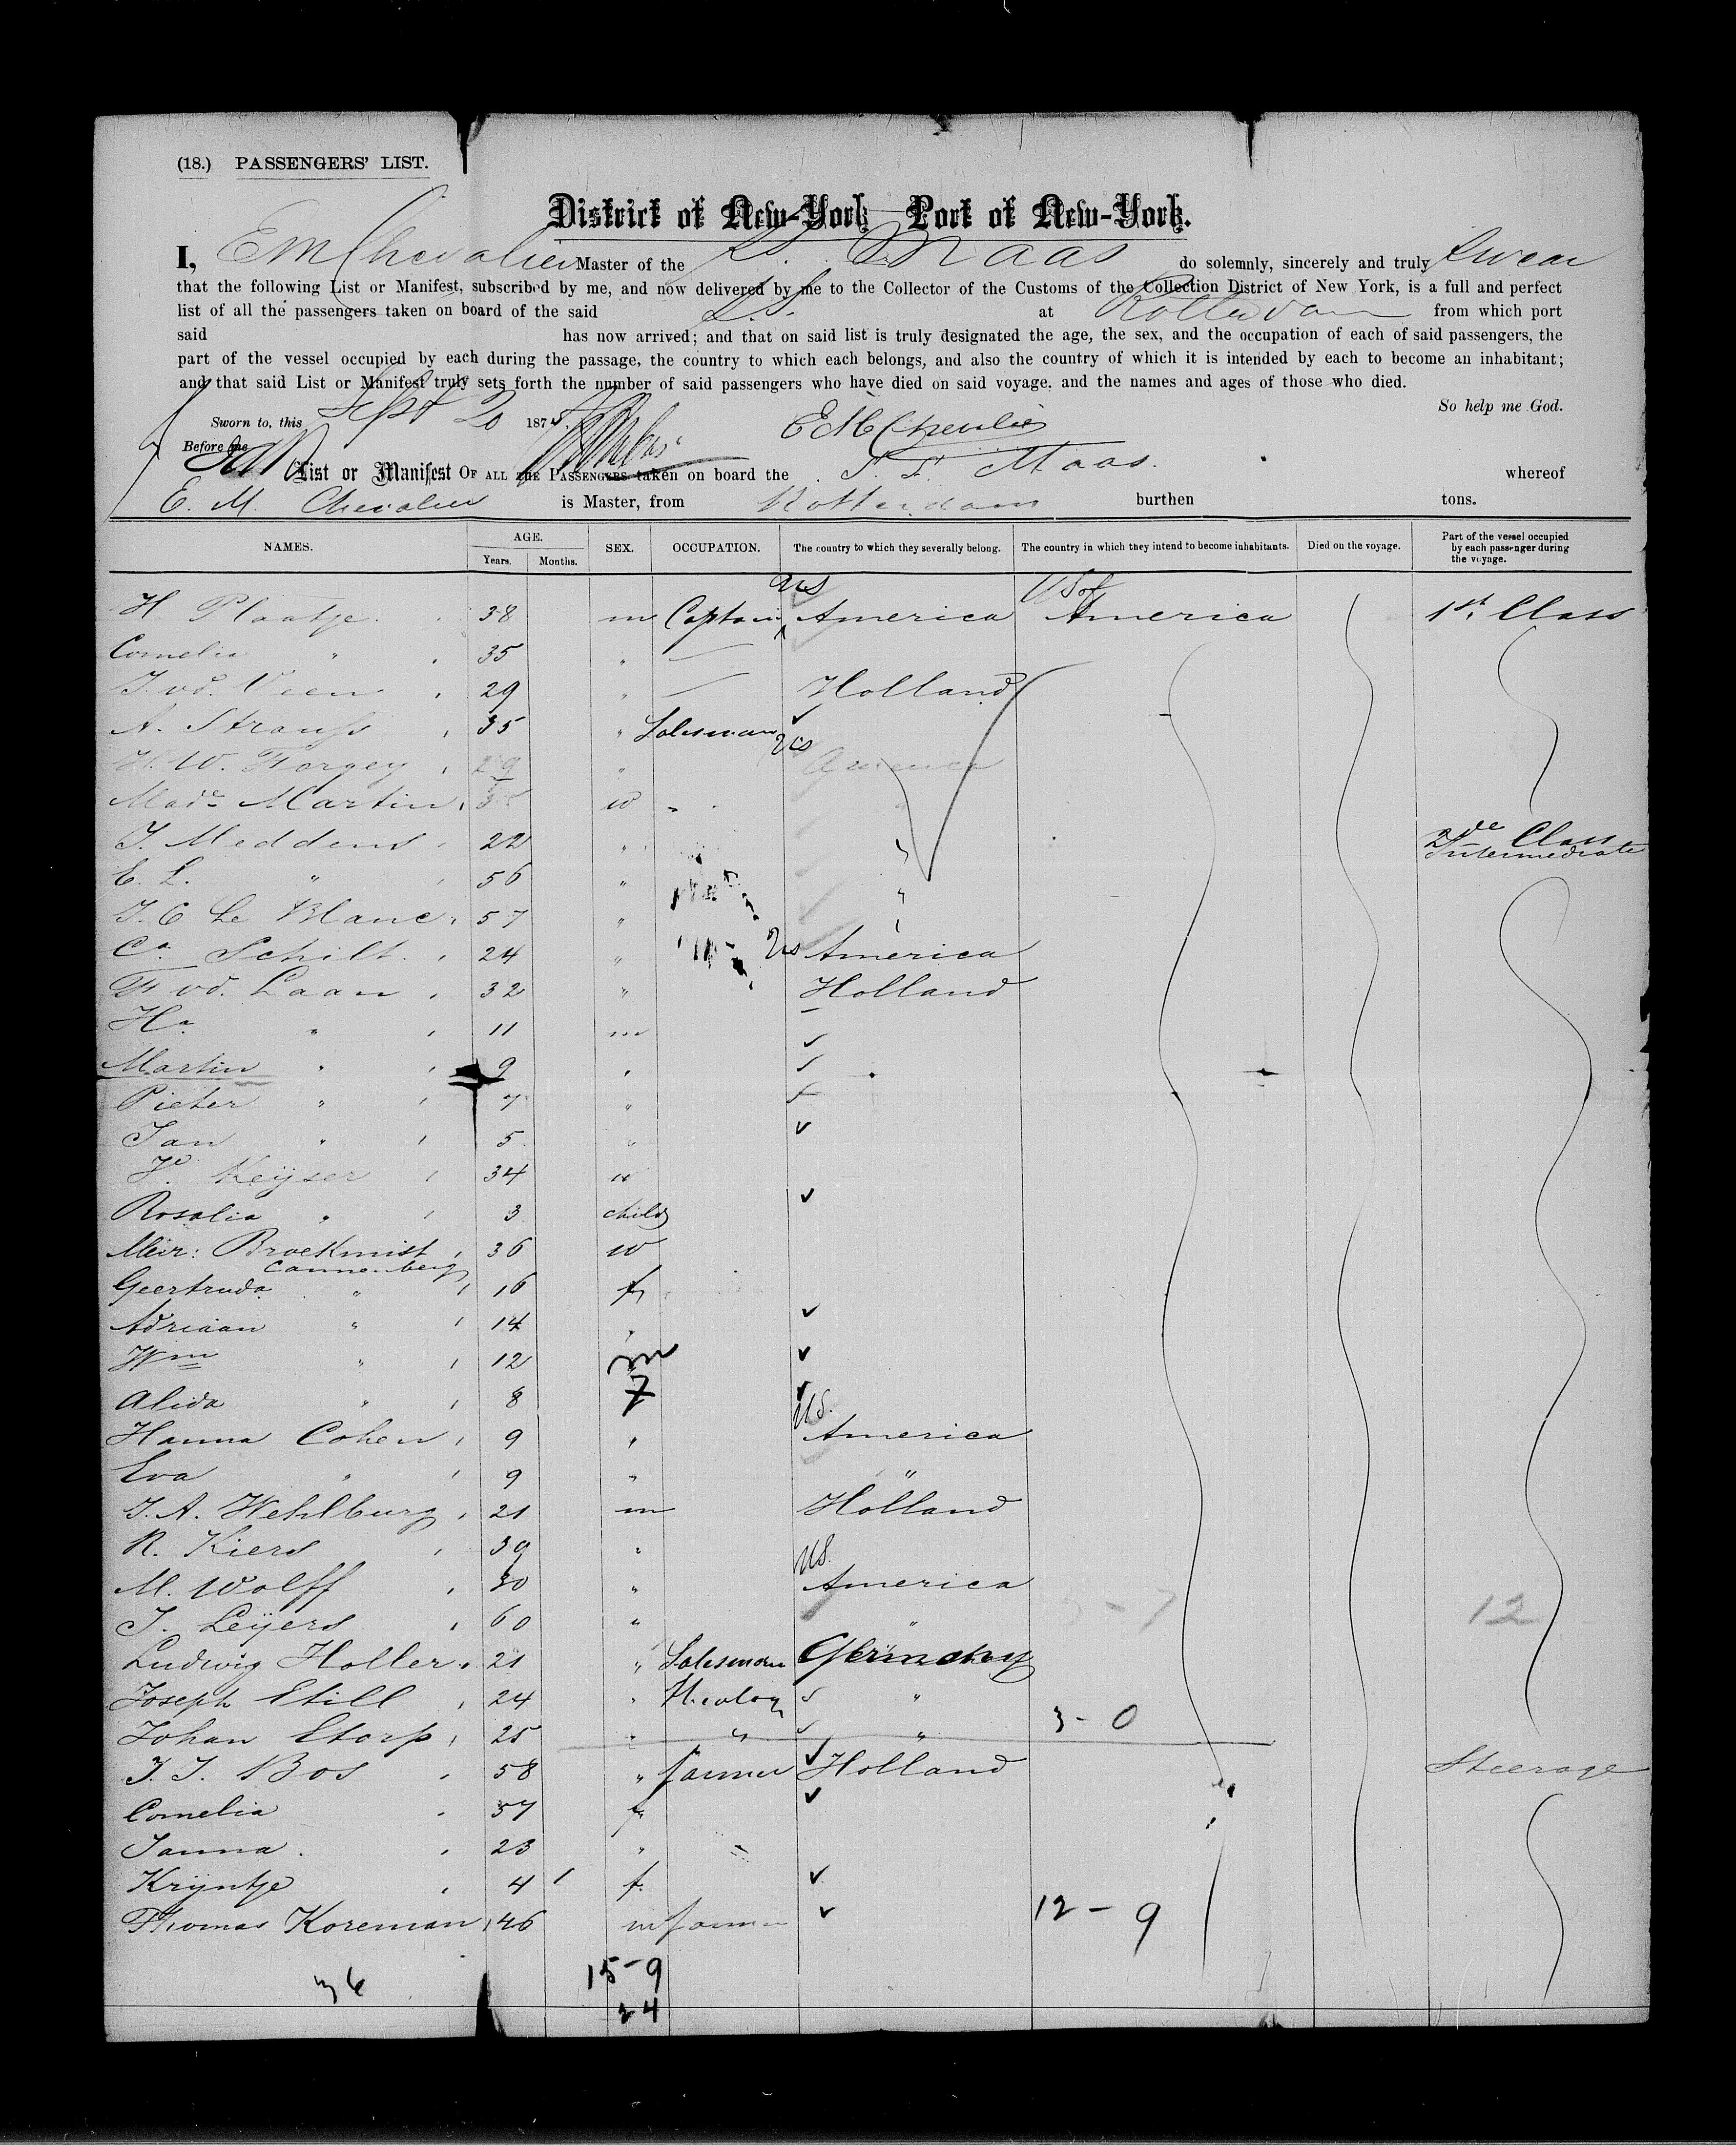 (18.) PASSENGERS' LIST.
District of New-York Port of New-York.
I, E M Chevalier Master of the S. S. Maas do solemnly, sincerely and truly Swear
that the following List or Manifest, subscribed by me, and now delivered by me to the Collector of the Customs of the Collection District of New York, is a full and perfect
list of all the passengers taken on board of the said S.S. at Rotterdam from which port
said has now arrived; and that on said list is truly designated the age, the sex, and the occupation of each of said passengers, the
part of the vessel occupied by each during the passage, the country to which each belongs, and also the country of which it is intended by each to become an inhabitant;
and that said List or Manifest truly sets forth the number of said passengers who have died on said voyage, and the names and ages of those who died.
So help me God.
Sworn to, this Sept 20 187 E M Chevalier
Before me
List or Manifest OF ALL THE PASSENGERS taken on board the S. S. Maas. whereof
E. M. Chevalier is Master, from Rotterdam burthen tons.
NAMES. AGE. Years. Months. SEX. OCCUPATION. The country to which they severally belong. The country in which they intend to become inhabitants. Died on the voyage. Part of the vessel occupied by each passenger during the voyage.
H. Plaatje. 38 m Captain US America US of America 1st Class
Cornelia " 35 "
J. vd. Veen 29 " Holland
A. Strauss 35 " Salesman
H. W. Forgey 29 " US America
Made Martin 3 w
J. Meddens 22 " " 2de Class Intermediate
C. L. " 56 " "
J. C Le Blanc 57 "
Ca. Schilt. 24 " US America
F vd. Laan 32 " Holland
Ha. " 11 m
Martin " 9 "
Pieter " 7 "
Jan " 5 "
Jo. Keijser 34 w
Rosalia " 3 child
Meir: Broekmist 36 w
Cannenberg
Geertruda " 16 f
Adriaan " 14 "
Wm " 12 m
Alida " 8 f
Hanna Cohen 9 " US. America
Eva " 9 " "
J. A. Wehlburg 21 m Holland
R. Kiers 39 "
M. Wolff 30 " US. America
J. Leijers 60 " " 12
Ludwig Holler 21 " Salesman Germany
Joseph Etill 24 " theolog "
Johan Etorp 25 " " " 3-0
J. J. Bos 58 " farmer Holland Steerage
Cornelia 57 f
Janna. 23 " "
Krijntje 4 f.
Thomas Koreman 46 m farmer 12-9
36 15-9
24